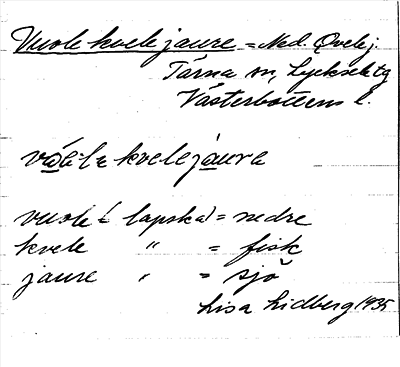 Vuolekvelejaure = Ned. Qvelej.
Tärna sn, Lycksele tg
Västerbottens l.
vuole (lapska) = nedre
kvele " = fisk
jaure " = sjö
Lisa Lidberg 1935